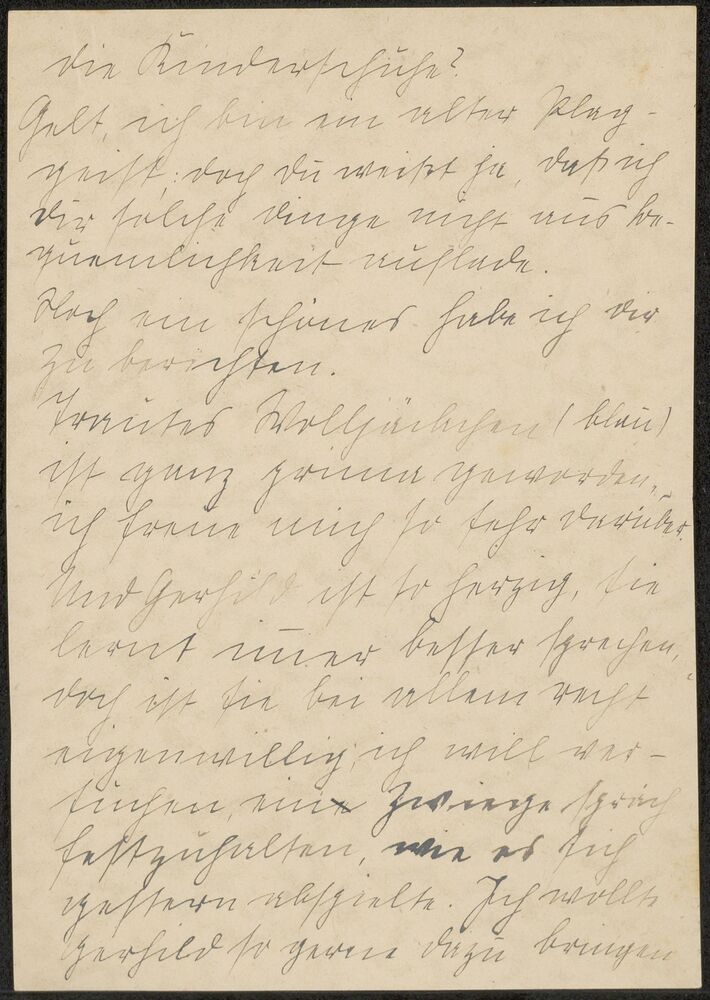 die Kinderschuhe?
Gelt, ich bin ein alter Plag-
geist; doch du weißt ja, daß ich
dir solche dinge nicht aus be-
quemlichkeit auflade.
Noch ein schönes habe ich dir
zu berichten.
Trautes Wolljäckchen (blau)
ist ganz prima geworden,
ich freue mich so sehr darüber.
Und Gerhild ist so herzig, sie
lernt im̅er besser sprechen,
doch ist sie bei allem recht
eigenwillig; ich will ver-
suchen, ein Zwiegespräch
festzuhalten, wie es sich
gestern abspielte. Ich wollte
Gerhild so gerne dazu bringen